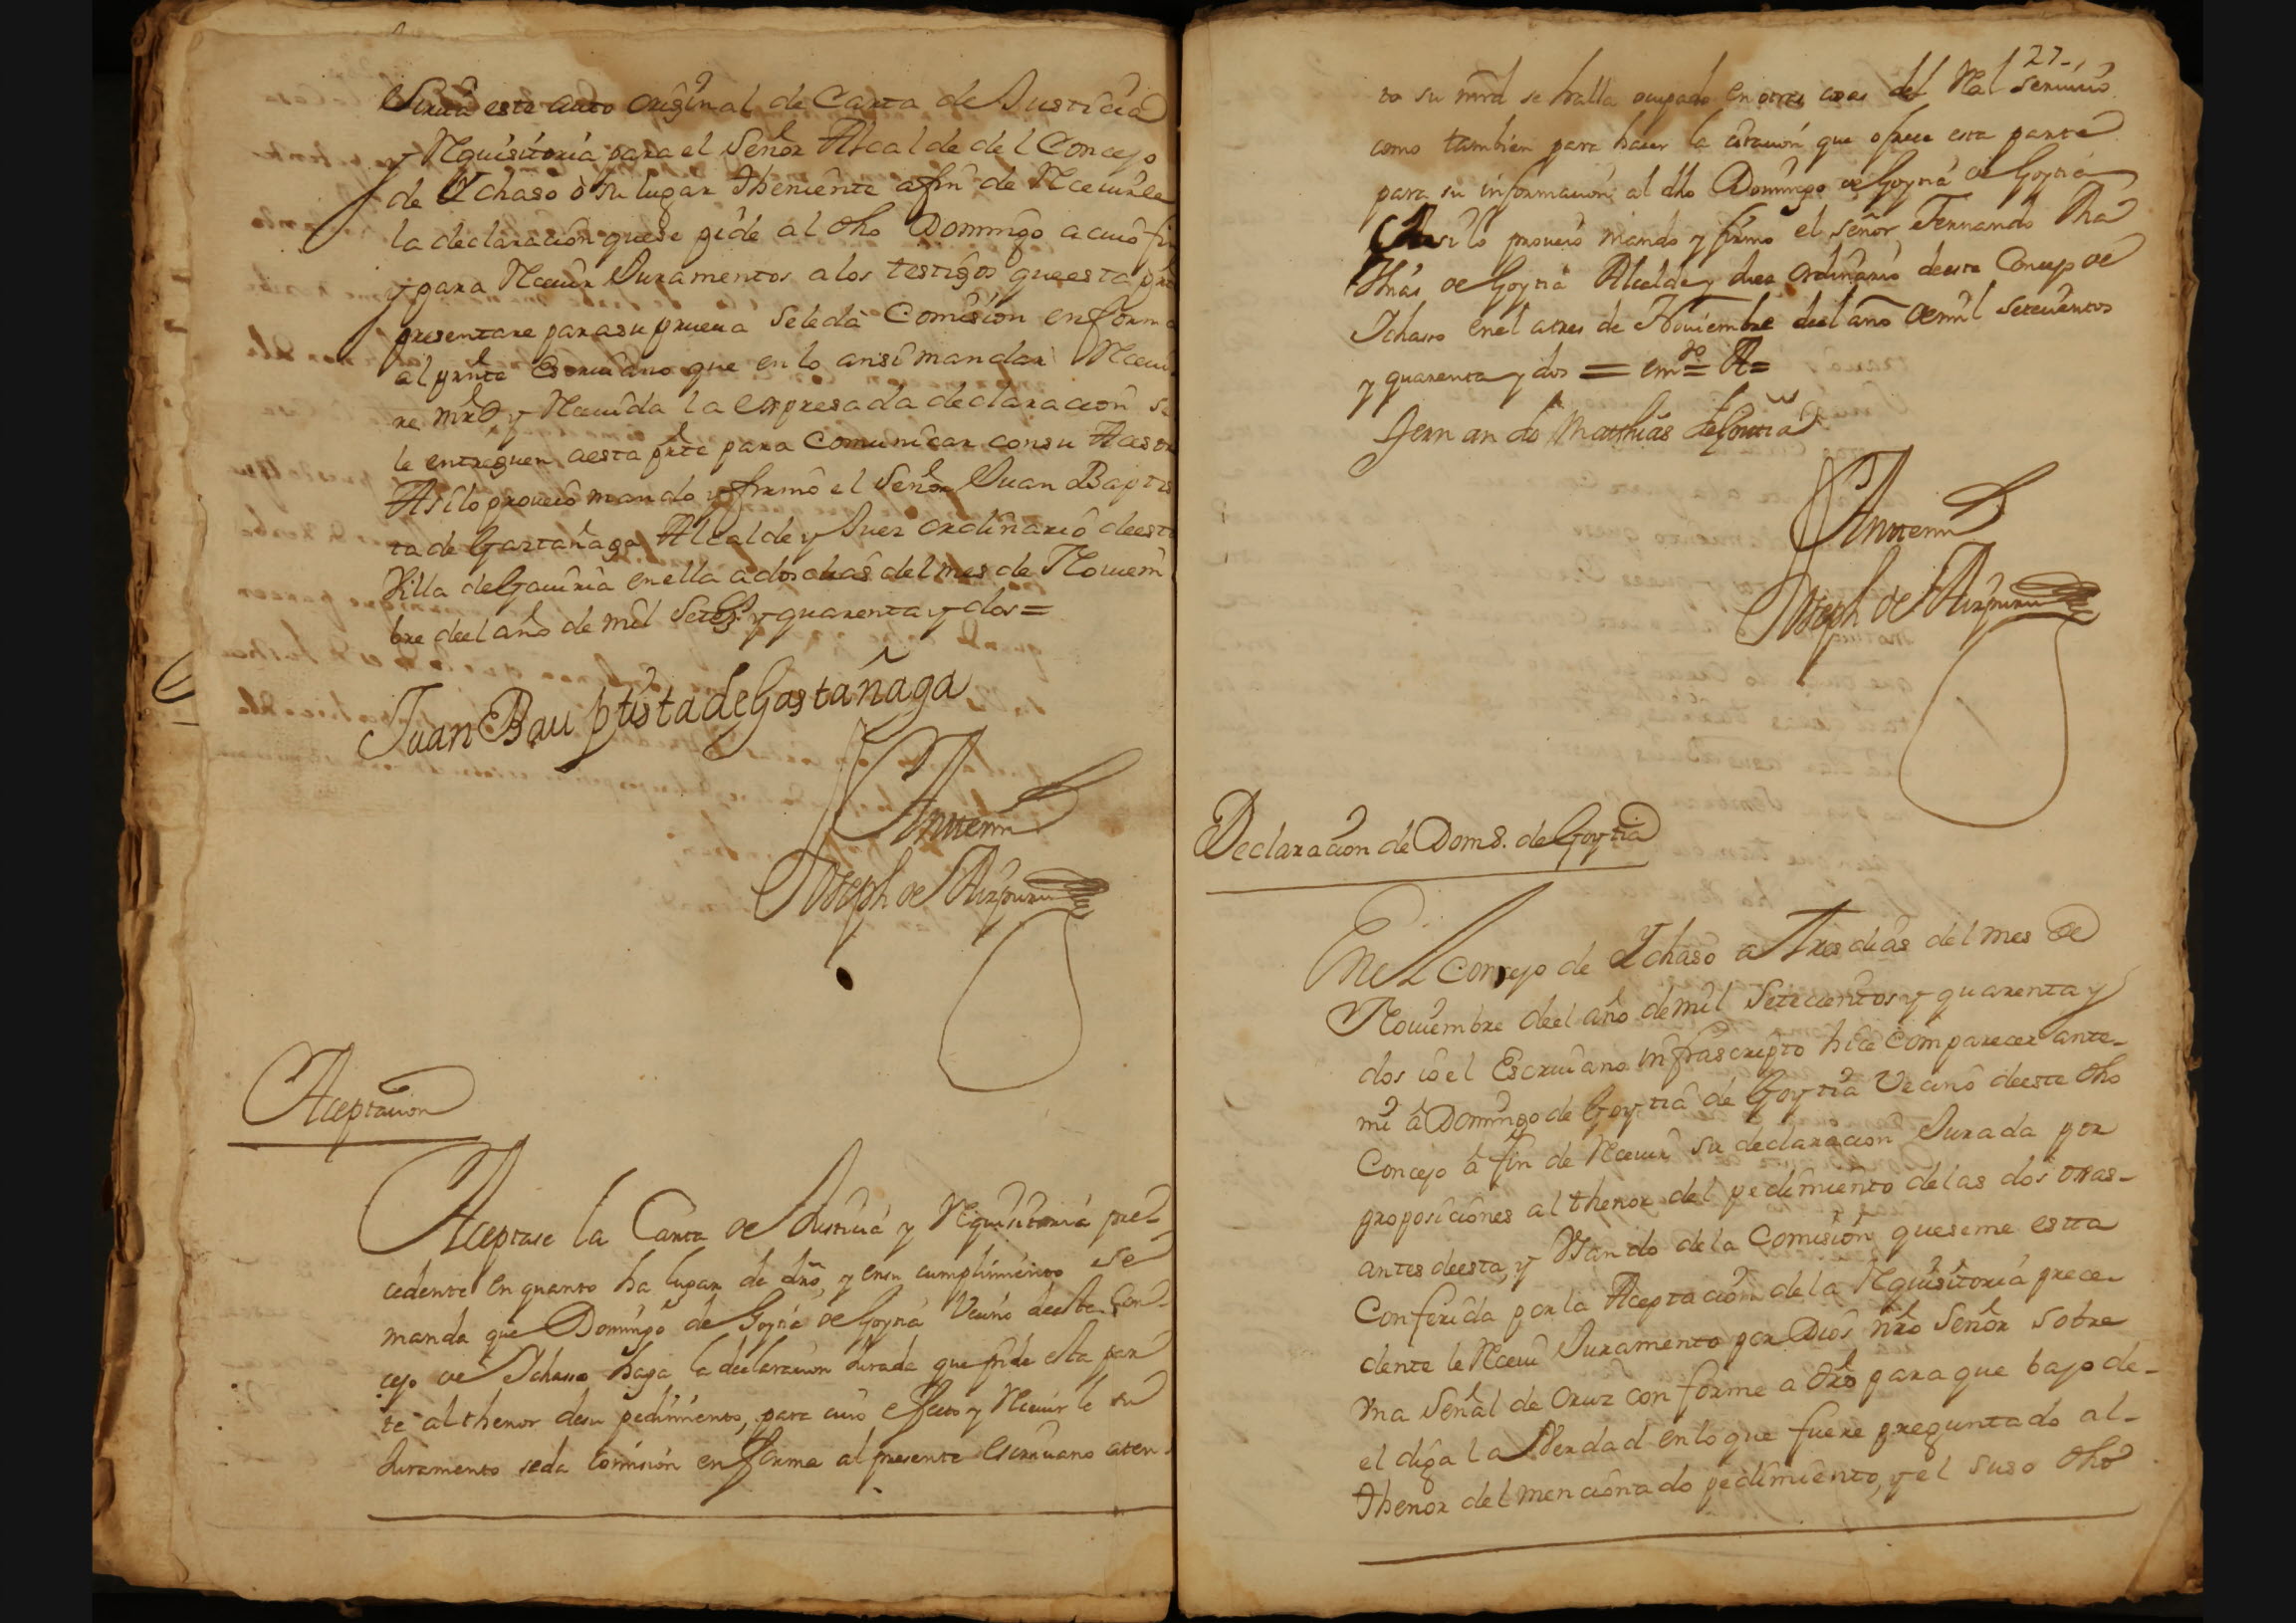 Sirua este auto original de Carta de Justicia
y Requisitoria para el Señor Alcalde del Concejo
de Ychaso ò su lugar theniente a fin de Reciuirle
la declaracion que se pide al dho Domingo a cuio fin
y para Reciuir Juramentos a los testigos que esta pte
presentare para su prueua se le dà Comision en forma
al preste Escriuano que en lo ansi mandar Reciui
re mrd y Reciuida la expresada declaracion se
le entreguen a esta pte para Comunicar con su Asesor
Asi lo proueiò mandò y firmò el Señor Juan Baptis
ta de Gastañaga Alcalde y Juez ordinario de esta
Villa de Gauiria en ella a dos dias del mes de Nouiem
bre de el año de mil Setezs y quarenta y dos =
Juan Bauptista de Gastañaga
Antemi
Joseph de Aizpuru
Aceptacion
Aceptase la Carta de Justicia y Requisitoria pre-
cedente en quanto ha lugar de dro, y en su cumplimiento se
manda que Domingo de Goytia de Goytia Vecino de este Con-
cejo de Ychasso haga la declaracion Jurada que pide esta par
te al thenor de su pedimiento, para cuio efecto y Reciuir le su
Juramento se da comision en forma al presente Escriuano aten-
27
to su mrd se halla ocupado en otras cosas del Real Seruicio
como tambien para hacer la citacion que ofrece esta parte
para su informacion al dho Domingo de Goytia de Goytia
Asi lo proueio mando y firmo el señor Fernando Ma
thias de Goytia Alcalde y Juez Ordinario de este Concejo de
Ychasso en el a tres de Nouiembre de el año de mil setecientos
y quarenta y dos = emdo = R =
Fernando Mathias de Goittia
Antemi
Joseph de Aizpuru
Declaracion de Domo. de Goytia
En el Concejo de Ychaso a tres dias del mes de
Nouiembre de el año de mil Setecientos y quarenta y
dos io el Escriuano infrascripto hice comparecer ante
mi â Domingo de Goytia de Goytia Vecino de este dho
Concejo â fin de Reciuir su declaracion Jurada por
proposiciones al thenor del pedimiento de las dos ojas
antes de esta, y Vsando de la Comision que se me estta
Conferida por la Aceptacion de la Requisitoria prece-
dente le Reciui Juramento por Dios nro Señor sobre
vna Señal de Cruz conforme a dro para que bajo de
el diga la Verdad en lo que fuere preguntado al
thenor del mencionado pedimiento, y el suso dho